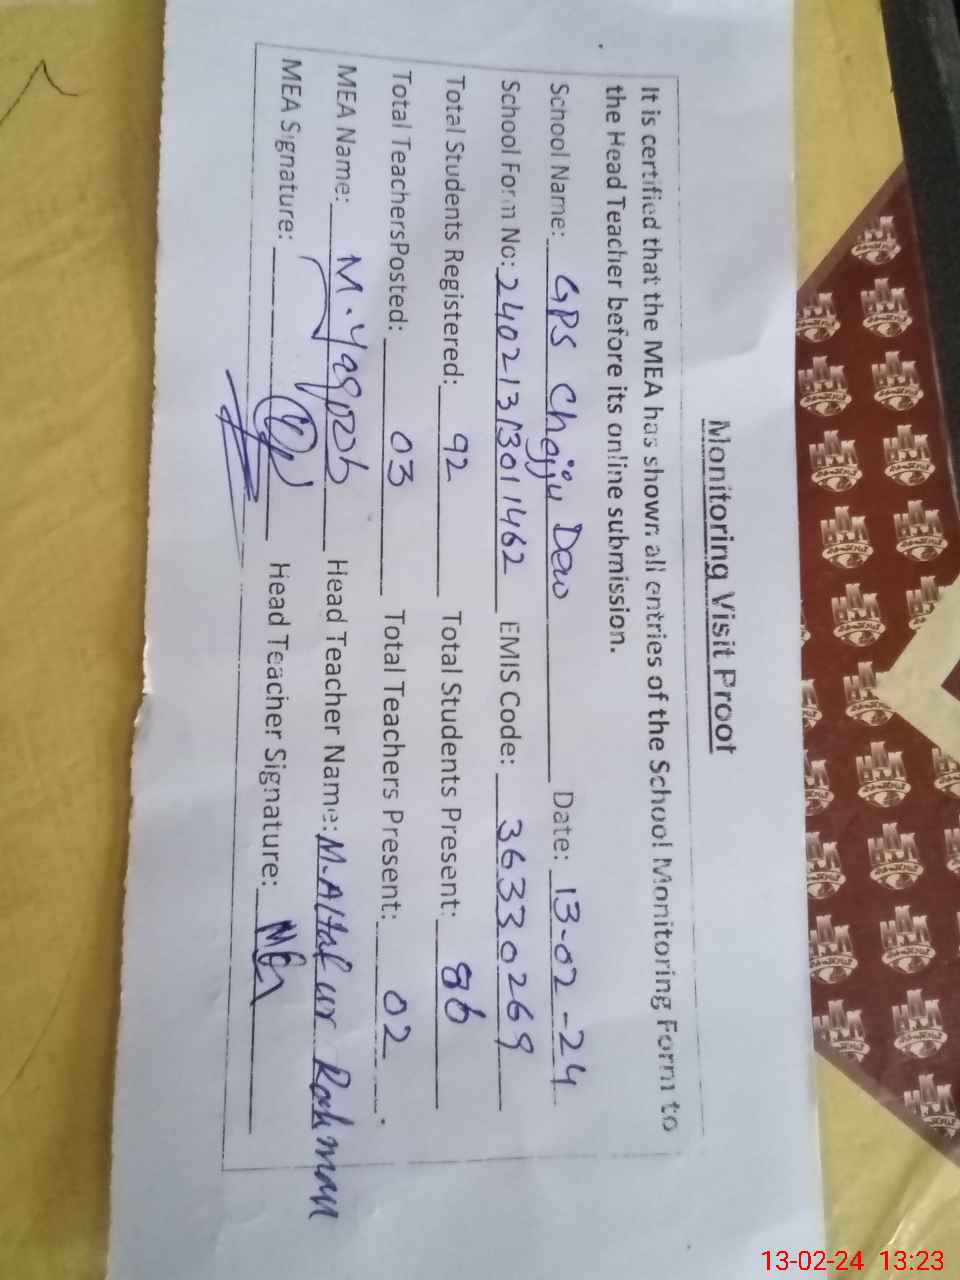 Monitoring Visit Proof
It is certified that the MEA has shown all entries of the School Monitoring Form to
the Head Teacher before its online submission.
School Name: GPS Chajju Dew Date: 13-02-24
School Form No: 240213/3011462 EMIS Code: 36330269
Total Students Registered: 92 Total Students Present: 86
Total TeachersPosted: 03 Total Teachers Present: 02
MEA Name: M. Yaqoob Head Teacher Name: M. Altaf ur Rahman
MEA Signature: Head Teacher Signature:
13-02-24 13:23